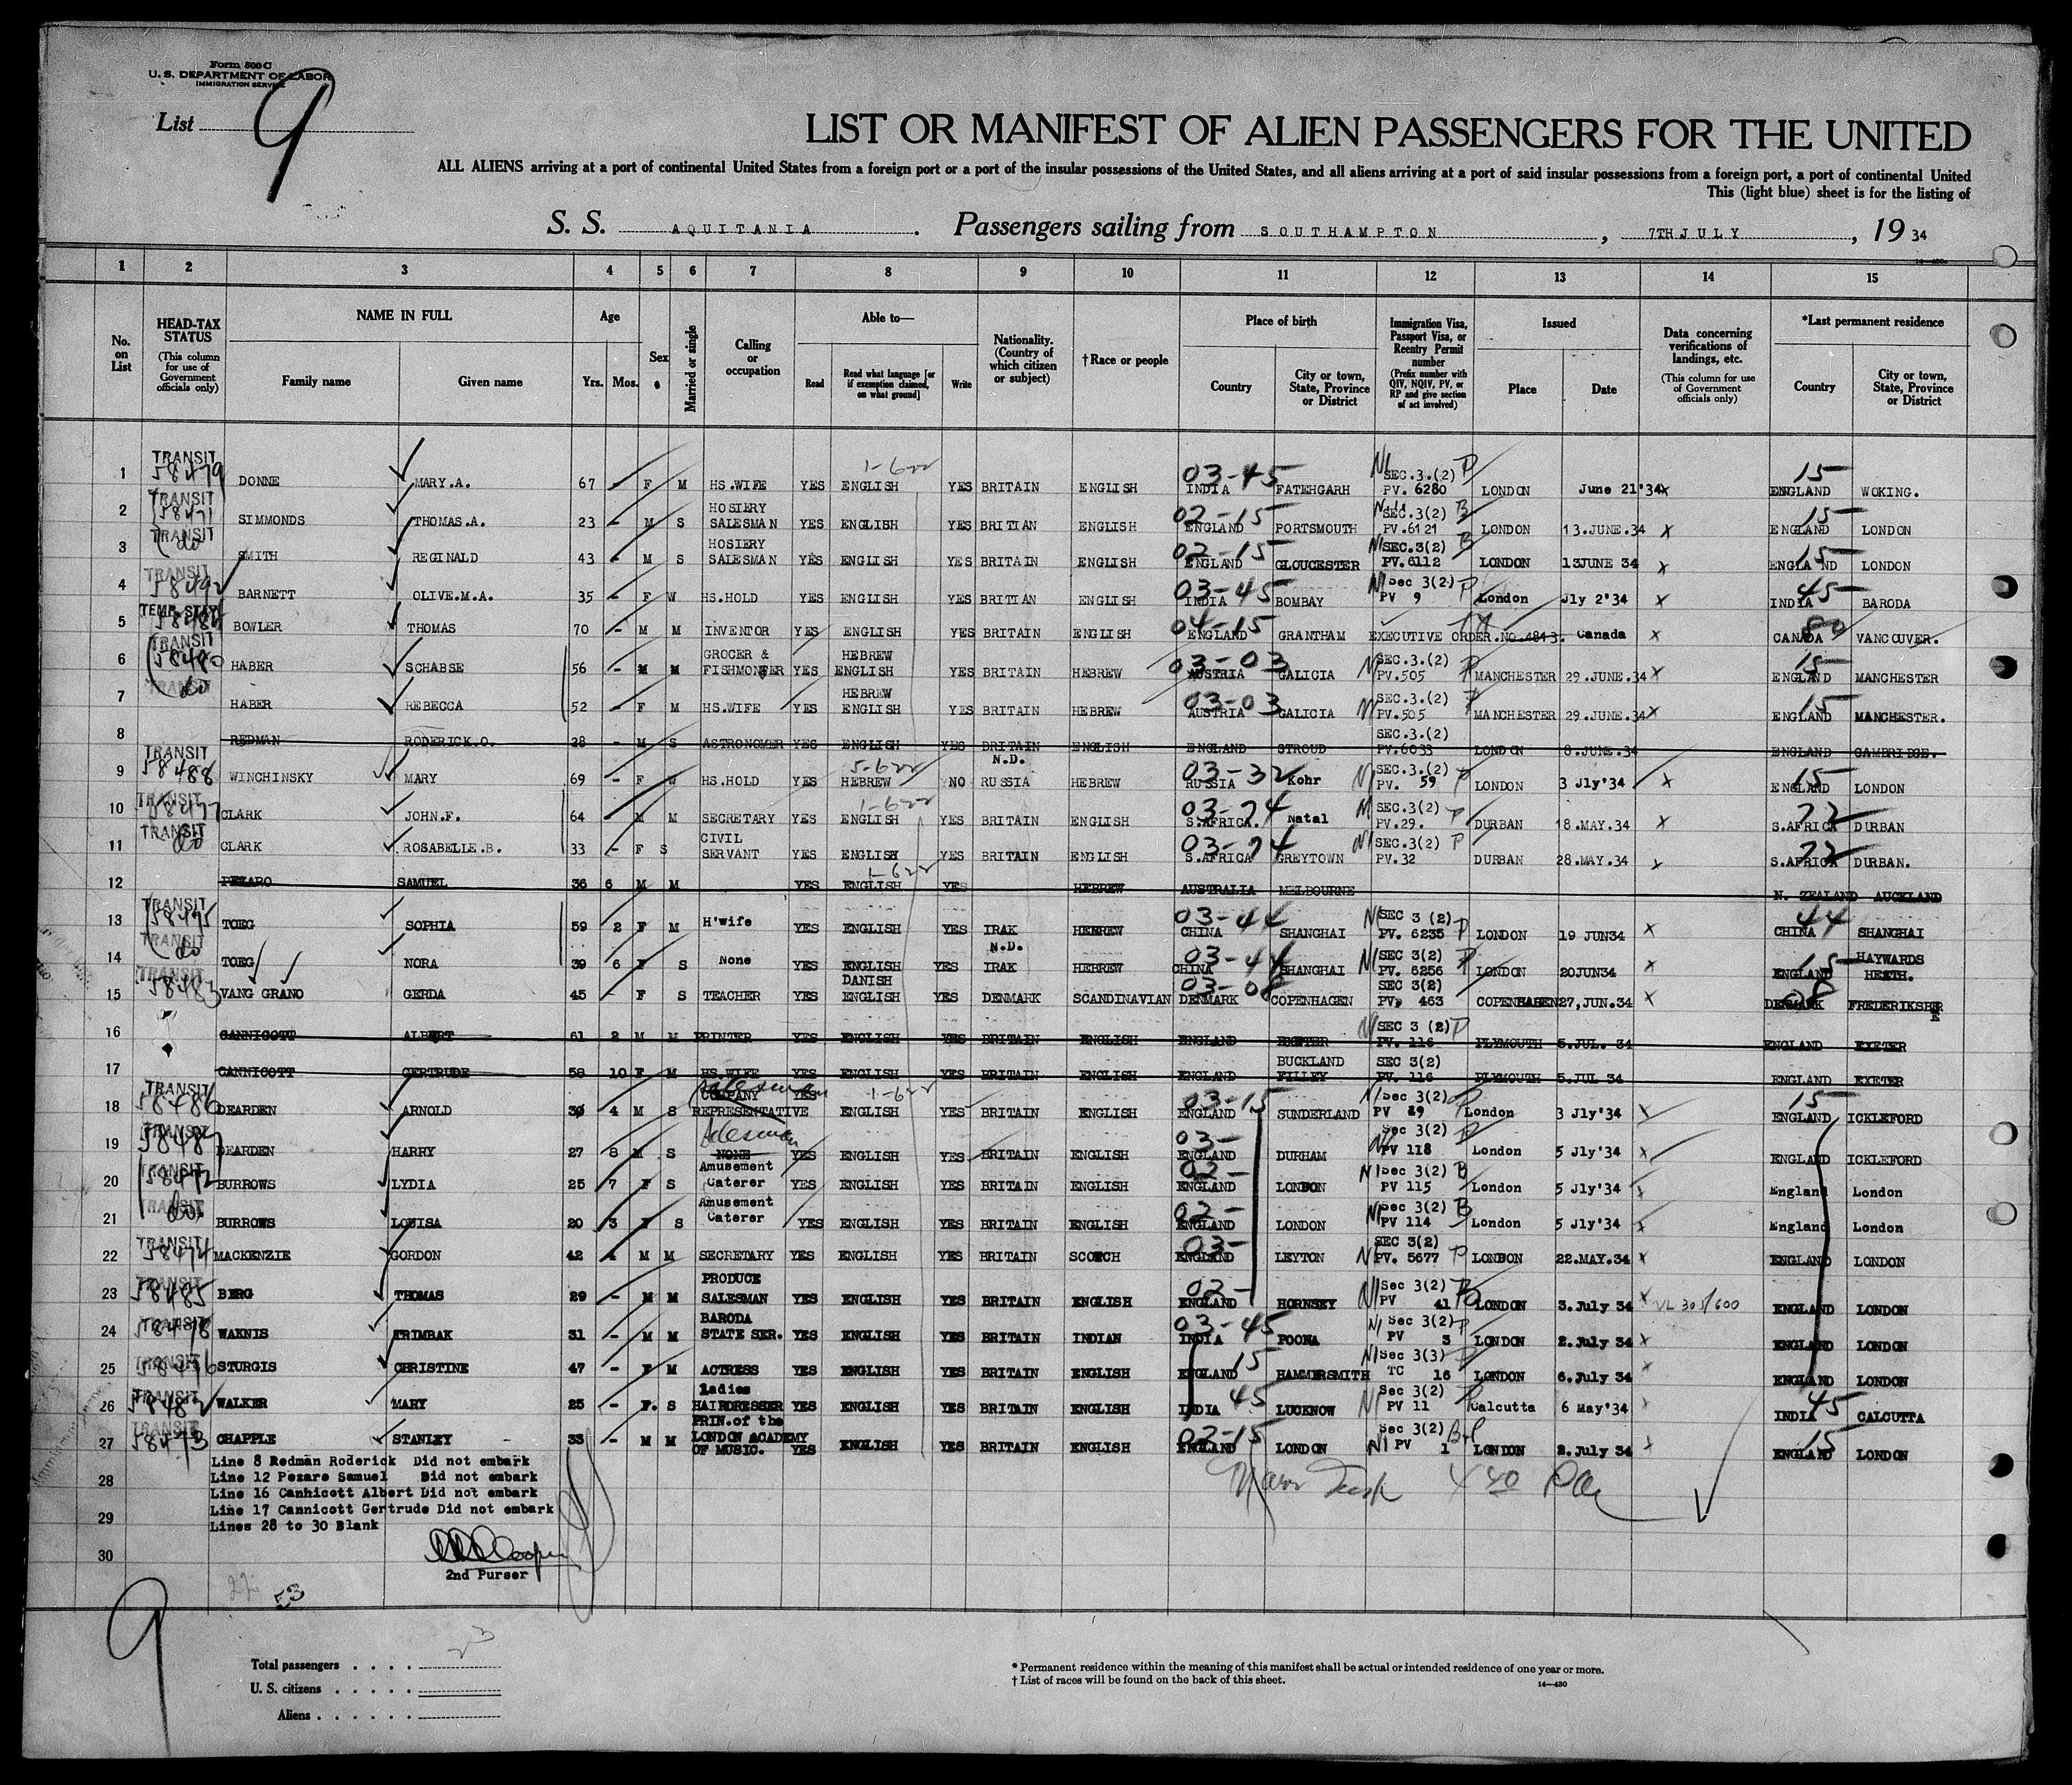 Form 500 C
U. S. DEPARTMENT OF LABOR
IMMIGRATION SERVICE
List 9
LIST OR MANIFEST OF ALIEN PASSENGERS FOR THE UNITED
ALL ALIENS arriving at a port of continental United States from a foreign port or a port of the insular possessions of the United States, and all aliens arriving at a port of said insular possessions from a foreign port, a port of continental United
This (light blue) sheet is for the listing of
S. S. AQUITANIA. Passengers sailing from SOUTHAMPTON, 7TH JULY, 19 34
1 2 3 4 5 6 7 8 9 10 11 12 13 14 15
No. on List
HEAD-TAX STATUS (This column for use of Government officials only)
NAME IN FULL Family name Given name
Age Yrs. Mos.
Sex
Married or single
Calling or occupation
Able to— Read Read what language [or if exemption claimed, on what ground] Write
Nationality. (Country of which citizen or subject)
† Race or people
Place of birth Country City or town, State, Province or District
Immigration Visa, Passport Visa, or Reentry Permit number (Prefix number with QIV, NQIV, PV, or RP and give section of act involved)
Issued Place Date
Data concerning verifications of landings, etc. (This column for use of Government officials only)
*Last permanent residence Country City or town, State, Province or District
1 TRANSIT 58479 DONNE MARY.A. 67 - F M HS.WIFE YES ENGLISH 1-622 YES BRITAIN ENGLISH 03-45 INDIA FATEHGARH SEC.3.(2) PV. 6280 LONDON June 21'34 x 15 ENGLAND WOKING.
2 TRANSIT 58471 SIMMONDS THOMAS.A. 23 - M S HOSIERY SALESMAN YES ENGLISH YES BRITIAN ENGLISH 02-15 ENGLAND PORTSMOUTH SEC.3(2) PV.6121 LONDON 13.JUNE.34 x 15 ENGLAND LONDON
3 TRANSIT do SMITH REGINALD 43 - M S HOSIERY SALESMAN YES ENGLISH YES BRITAIN ENGLISH 02-15 ENGLAND GLOUCESTER SEC.3(2) PV.6112 LONDON 13JUNE 34 x 15 ENGLAND LONDON
4 TRANSIT 58492 BARNETT OLIVE.M.A. 35 - F W HS.HOLD YES ENGLISH YES BRITIAN ENGLISH 03-45 INDIA BOMBAY Sec 3(2) PV 9 London Jly 2'34 x 45 INDIA BARODA
5 TEMP. STAY BOWLER THOMAS 70 - M M INVENTOR YES ENGLISH YES BRITAIN ENGLISH 04-15 ENGLAND GRANTHAM EXECUTIVE ORDER.NO.4813. Canada x 80 CANADA VANCOUVER.
6 TRANSIT 58480 HABER SCHABSE 56 - M M GROCER & FISHMONGER YES HEBREW ENGLISH YES BRITAIN HEBREW 03-03 AUSTRIA GALICIA SEC.3.(2) PV.505 MANCHESTER 29.JUNE.34 x 15 ENGLAND MANCHESTER
7 TRANSIT do HABER REBECCA 52 - F M HS.WIFE YES HEBREW ENGLISH YES BRITAIN HEBREW 03-03 AUSTRIA GALICIA SEC.3.(2) PV.505 MANCHESTER 29.JUNE.34 x 15 ENGLAND MANCHESTER.
8 REDMAN RODERICK.O. 28 - M S ASTRONOMER YES ENGLISH YES BRITAIN ENGLISH ENGLAND STROUD SEC.3.(2) PV.6033 LONDON 8.JUNE.34 ENGLAND CAMBRIDGE.
9 TRANSIT 58488 WINCHINSKY MARY 69 - F W HS.HOLD YES HEBREW 5-622 NO N.D. RUSSIA HEBREW 03-32 RUSSIA Kohr SEC.3.(2) PV. 59 LONDON 3 Jly'34 x 15 ENGLAND LONDON
10 TRANSIT 58477 CLARK JOHN.F. 64 M M SECRETARY YES ENGLISH 1-622 YES BRITAIN ENGLISH 03-74 S.AFRICA. Natal SEC.3(2) PV.29. DURBAN 18.MAY.34 x 72 S.AFRICA DURBAN
11 TRANSIT do CLARK ROSABELLE.B. 33 - F S CIVIL SERVANT YES ENGLISH YES BRITAIN ENGLISH 03-74 S.AFRICA GREYTOWN SEC.3(2) PV.32 DURBAN 28.MAY.34 x 72 S.AFRICA DURBAN.
12 PEZARO SAMUEL 36 6 M M YES ENGLISH 1-622 YES HEBREW AUSTRALIA MELBOURNE N. ZEALAND AUCKLAND
13 TRANSIT 58495 TOEG SOPHIA 59 2 F M H'wife YES ENGLISH YES IRAK HEBREW 03-44 CHINA SHANGHAI SEC 3 (2) PV. 6235 LONDON 19 JUN34 x 44 CHINA SHANGHAI
14 TRANSIT do TOEG NORA 39 6 F S None YES ENGLISH YES N.D. IRAK HEBREW 03-44 CHINA SHANGHAI SEC 3(2) PV. 6256 LONDON 20JUN34 x 15 ENGLAND HAYWARDS HEATH.
15 TRANSIT 58483 VANG GRANO GERDA 45 - F S TEACHER YES DANISH ENGLISH YES DENMARK SCANDINAVIAN 03-08 DENMARK COPENHAGEN SEC 3(2) PV. 463 COPENHAGEN 27,JUN.34 x 08 DENMARK FREDERIKSBER
16 CANNICOTT ALBERT 61 2 M M PRINTER YES ENGLISH YES BRITAIN ENGLISH ENGLAND EXETER SEC 3 (2) PV. 116 PLYMOUTH 5.JUL. 34 ENGLAND EXETER
17 CANNICOTT GERTRUDE 58 10 F M HS.WIFE YES ENGLISH YES BRITAIN ENGLISH ENGLAND BUCKLAND FILLEY SEC 3(2) PV. 116 PLYMOUTH 5.JUL 34 ENGLAND EXETER
18 TRANSIT 58486 DEARDEN ARNOLD 30 4 M S Salesman COMPANY REPRESENTATIVE YES ENGLISH 1-622 YES BRITAIN ENGLISH 03-15 ENGLAND SUNDERLAND Sec 3(2) PV 29 London 3 Jly'34 x 15 ENGLAND ICKLEFORD
19 TRANSIT 58487 DEARDEN HARRY 27 8 M S Salesman NONE YES ENGLISH YES BRITAIN ENGLISH 03- ENGLAND DURHAM Sec 3(2) PV 118 London 5 Jly'34 x ENGLAND ICKLEFORD
20 TRANSIT 58472 BURROWS LYDIA 25 7 F S Amusement Caterer YES ENGLISH YES BRITAIN ENGLISH 02- ENGLAND LONDON Sec 3(2) PV 115 London 5 Jly'34 x England London
21 TRANSIT do. BURROWS LOUISA 20 3 F S Amusement Caterer YES ENGLISH YES BRITAIN ENGLISH 02- ENGLAND LONDON Sec 3(2) PV 114 London 5 Jly'34 x England London
22 TRANSIT 58474 MACKENZIE GORDON 42 4 M M SECRETARY YES ENGLISH YES BRITAIN SCOTCH 03- ENGLAND LEYTON SEC 3(2) PV. 5677 LONDON 22.MAY.34 x ENGLAND LONDON
23 TRANSIT 58485 BERG THOMAS 29 - M M PRODUCE SALESMAN YES ENGLISH YES BRITAIN ENGLISH 02- ENGLAND HORNSEY Sec 3(2) PV 41 LONDON 3.July 34 x VL 305/600 ENGLAND LONDON
24 TRANSIT 58478 WAKNIS TRIMBAK 31 - M M BARODA STATE SER. YES ENGLISH YES BRITAIN INDIAN 03-45 INDIA POONA Sec 3(2) PV 3 LONDON 2.July 34 x ENGLAND LONDON
25 TRANSIT 58476 STURGIS CHRISTINE 47 - F M ACTRESS YES ENGLISH YES BRITAIN ENGLISH 15 ENGLAND HAMMERSMITH Sec 3(3) TC 16 LONDON 6.July 34 x ENGLAND LONDON
26 TRANSIT 58482 WALKER MARY 25 - F. S ladies HAIRDRESSER YES ENGLISH YES BRITAIN ENGLISH 45 INDIA LUCKNOW Sec 3(2) PV 11 Calcutta 6 May'34 x 45 INDIA CALCUTTA
27 TRANSIT 58473 CHAPPLE STANLEY 33 - M M PRIN.of the LONDON ACADEMY OF MUSIC. YES ENGLISH YES BRITAIN ENGLISH 02-15 ENGLAND LONDON Sec 3(2) PV 1 LONDON 2.July 34 x 15 ENGLAND LONDON
Line 8 Redman Roderick Did not embark
28 Line 12 Pezaro Samuel Did not embark
Line 16 Canhicott Albert Did not embark
29 Line 17 Cannicott Gertrude Did not embark
Lines 28 to 30 Blank
30 Cooper
2nd Purser
53
9
Total passengers . . . . 23
U. S. citizens . . . . .
Aliens . . . . . .
* Permanent residence within the meaning of this manifest shall be actual or intended residence of one year or more.
† List of races will be found on the back of this sheet.
14—430